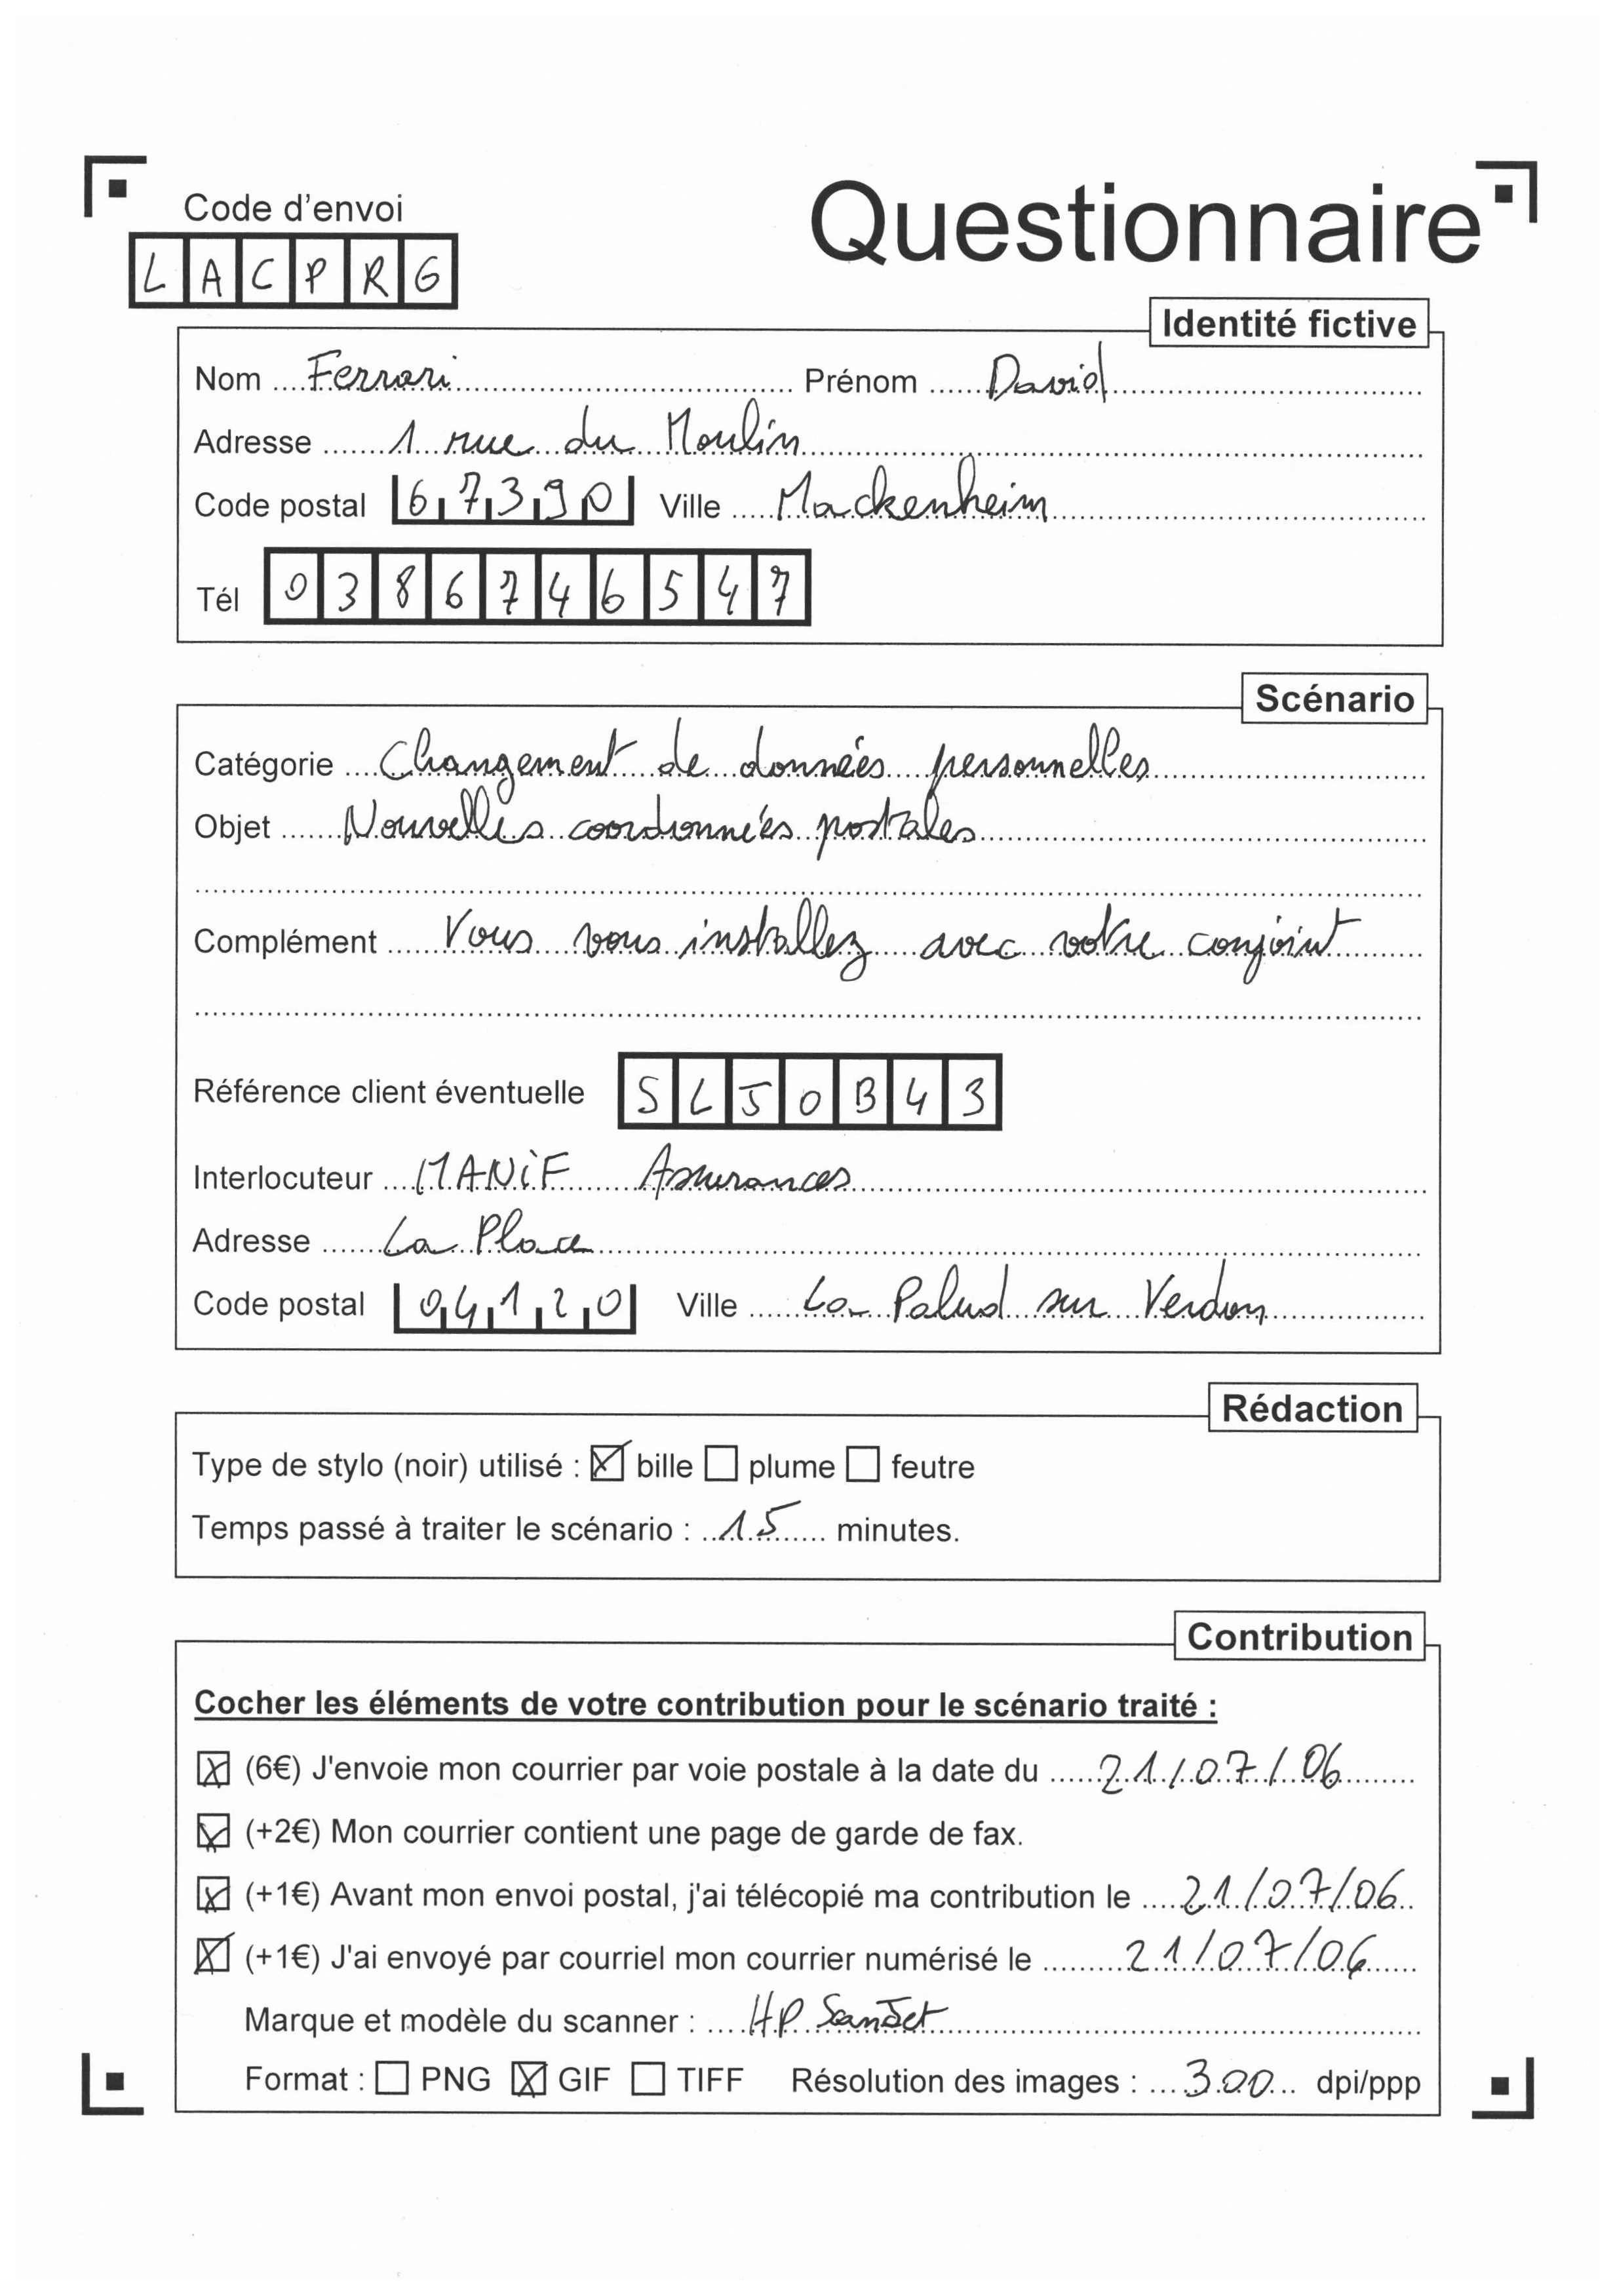 Code d'envoi
Questionnaire
LACPRG
Identité fictive
Nom Ferrari Prénom David
Adresse 1 rue du Moulin
Code postal 67390 Ville Mackenheim
Tél 0386746547
Scénario
Catégorie Changement de données personnelles
Objet Nouvelles coordonnées postales
Complément Vous vous installez avec votre conjoint
Référence client éventuelle SLJ0B43
Interlocuteur MANIF Assurances
Adresse La Place
Code postal 04120 Ville La Palud sur Verdon
Rédaction
Type de stylo (noir) utilisé : ☒ bille ☐ plume ☐ feutre
Temps passé à traiter le scénario : 15 minutes.
Contribution
Cocher les éléments de votre contribution pour le scénario traité :
☒ (6€) J'envoie mon courrier par voie postale à la date du 21/07/06
☒ (+2€) Mon courrier contient une page de garde de fax.
☒ (+1€) Avant mon envoi postal, j'ai télécopié ma contribution le 21/07/06
☒ (+1€) J'ai envoyé par courriel mon courrier numérisé le 21/07/06
Marque et modèle du scanner : HP ScanJet
Format : ☐ PNG ☒ GIF ☐ TIFF Résolution des images : 300 dpi/ppp